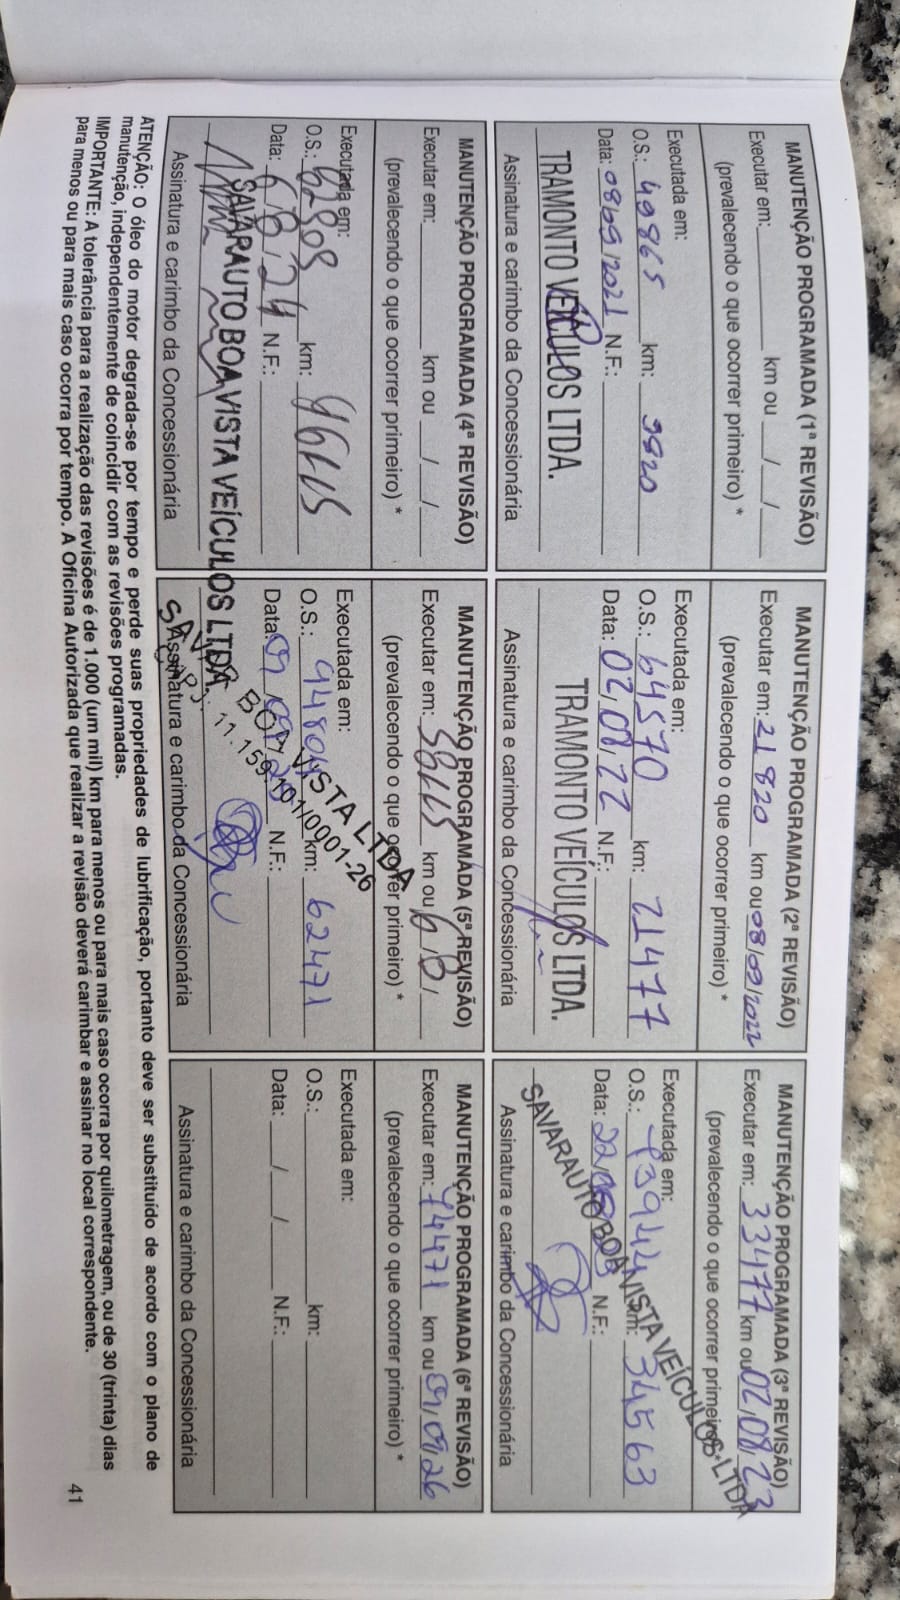 MANUTENÇÃO PROGRAMADA (1ª REVISÃO)
Executar em: km ou / /
(prevalecendo o que ocorrer primeiro) *
Executada em:
O.S.: 49865 km: 9820
Data: 08/09/2021 N.F.:
TRAMONTO VEÍCULOS LTDA.
Assinatura e carimbo da Concessionária
MANUTENÇÃO PROGRAMADA (2ª REVISÃO)
Executar em: 21820 km ou 08/09/2022
(prevalecendo o que ocorrer primeiro) *
Executada em:
O.S.: 64570 km: 21477
Data: 02/08/22 N.F.:
TRAMONTO VEÍCULOS LTDA.
Assinatura e carimbo da Concessionária
MANUTENÇÃO PROGRAMADA (3ª REVISÃO)
Executar em: 33477 km ou 02/08/23
(prevalecendo o que ocorrer primeiro) *
Executada em:
O.S.: 73944 km: 34563
Data: N.F.:
SAVARAUTO BOA VISTA VEÍCULOS LTDA
Assinatura e carimbo da Concessionária
MANUTENÇÃO PROGRAMADA (4ª REVISÃO)
Executar em: km ou / /
(prevalecendo o que ocorrer primeiro) *
Executada em:
O.S.: km:
Data: 6/8/24 N.F.:
SAVARAUTO BOA VISTA VEÍCULOS LTDA.
Assinatura e carimbo da Concessionária
MANUTENÇÃO PROGRAMADA (5ª REVISÃO)
Executar em: km ou 6/8/
(prevalecendo o que ocorrer primeiro) *
Executada em:
O.S.: 94804 km: 62471
Data: N.F.:
BOA VISTA LTDA
CNPJ: 11.159.101/0001-26
Assinatura e carimbo da Concessionária
MANUTENÇÃO PROGRAMADA (6ª REVISÃO)
Executar em: 74471 km ou 09/09/26
(prevalecendo o que ocorrer primeiro) *
Executada em:
O.S.: km:
Data: / / N.F.:
Assinatura e carimbo da Concessionária
ATENÇÃO: O óleo do motor degrada-se por tempo e perde suas propriedades de lubrificação, portanto deve ser substituído de acordo com o plano de
manutenção, independentemente de coincidir com as revisões programadas.
IMPORTANTE: A tolerância para a realização das revisões é de 1.000 (um mil) km para menos ou para mais caso ocorra por quilometragem, ou de 30 (trinta) dias
para menos ou para mais caso ocorra por tempo. A Oficina Autorizada que realizar a revisão deverá carimbar e assinar no local correspondente.
41